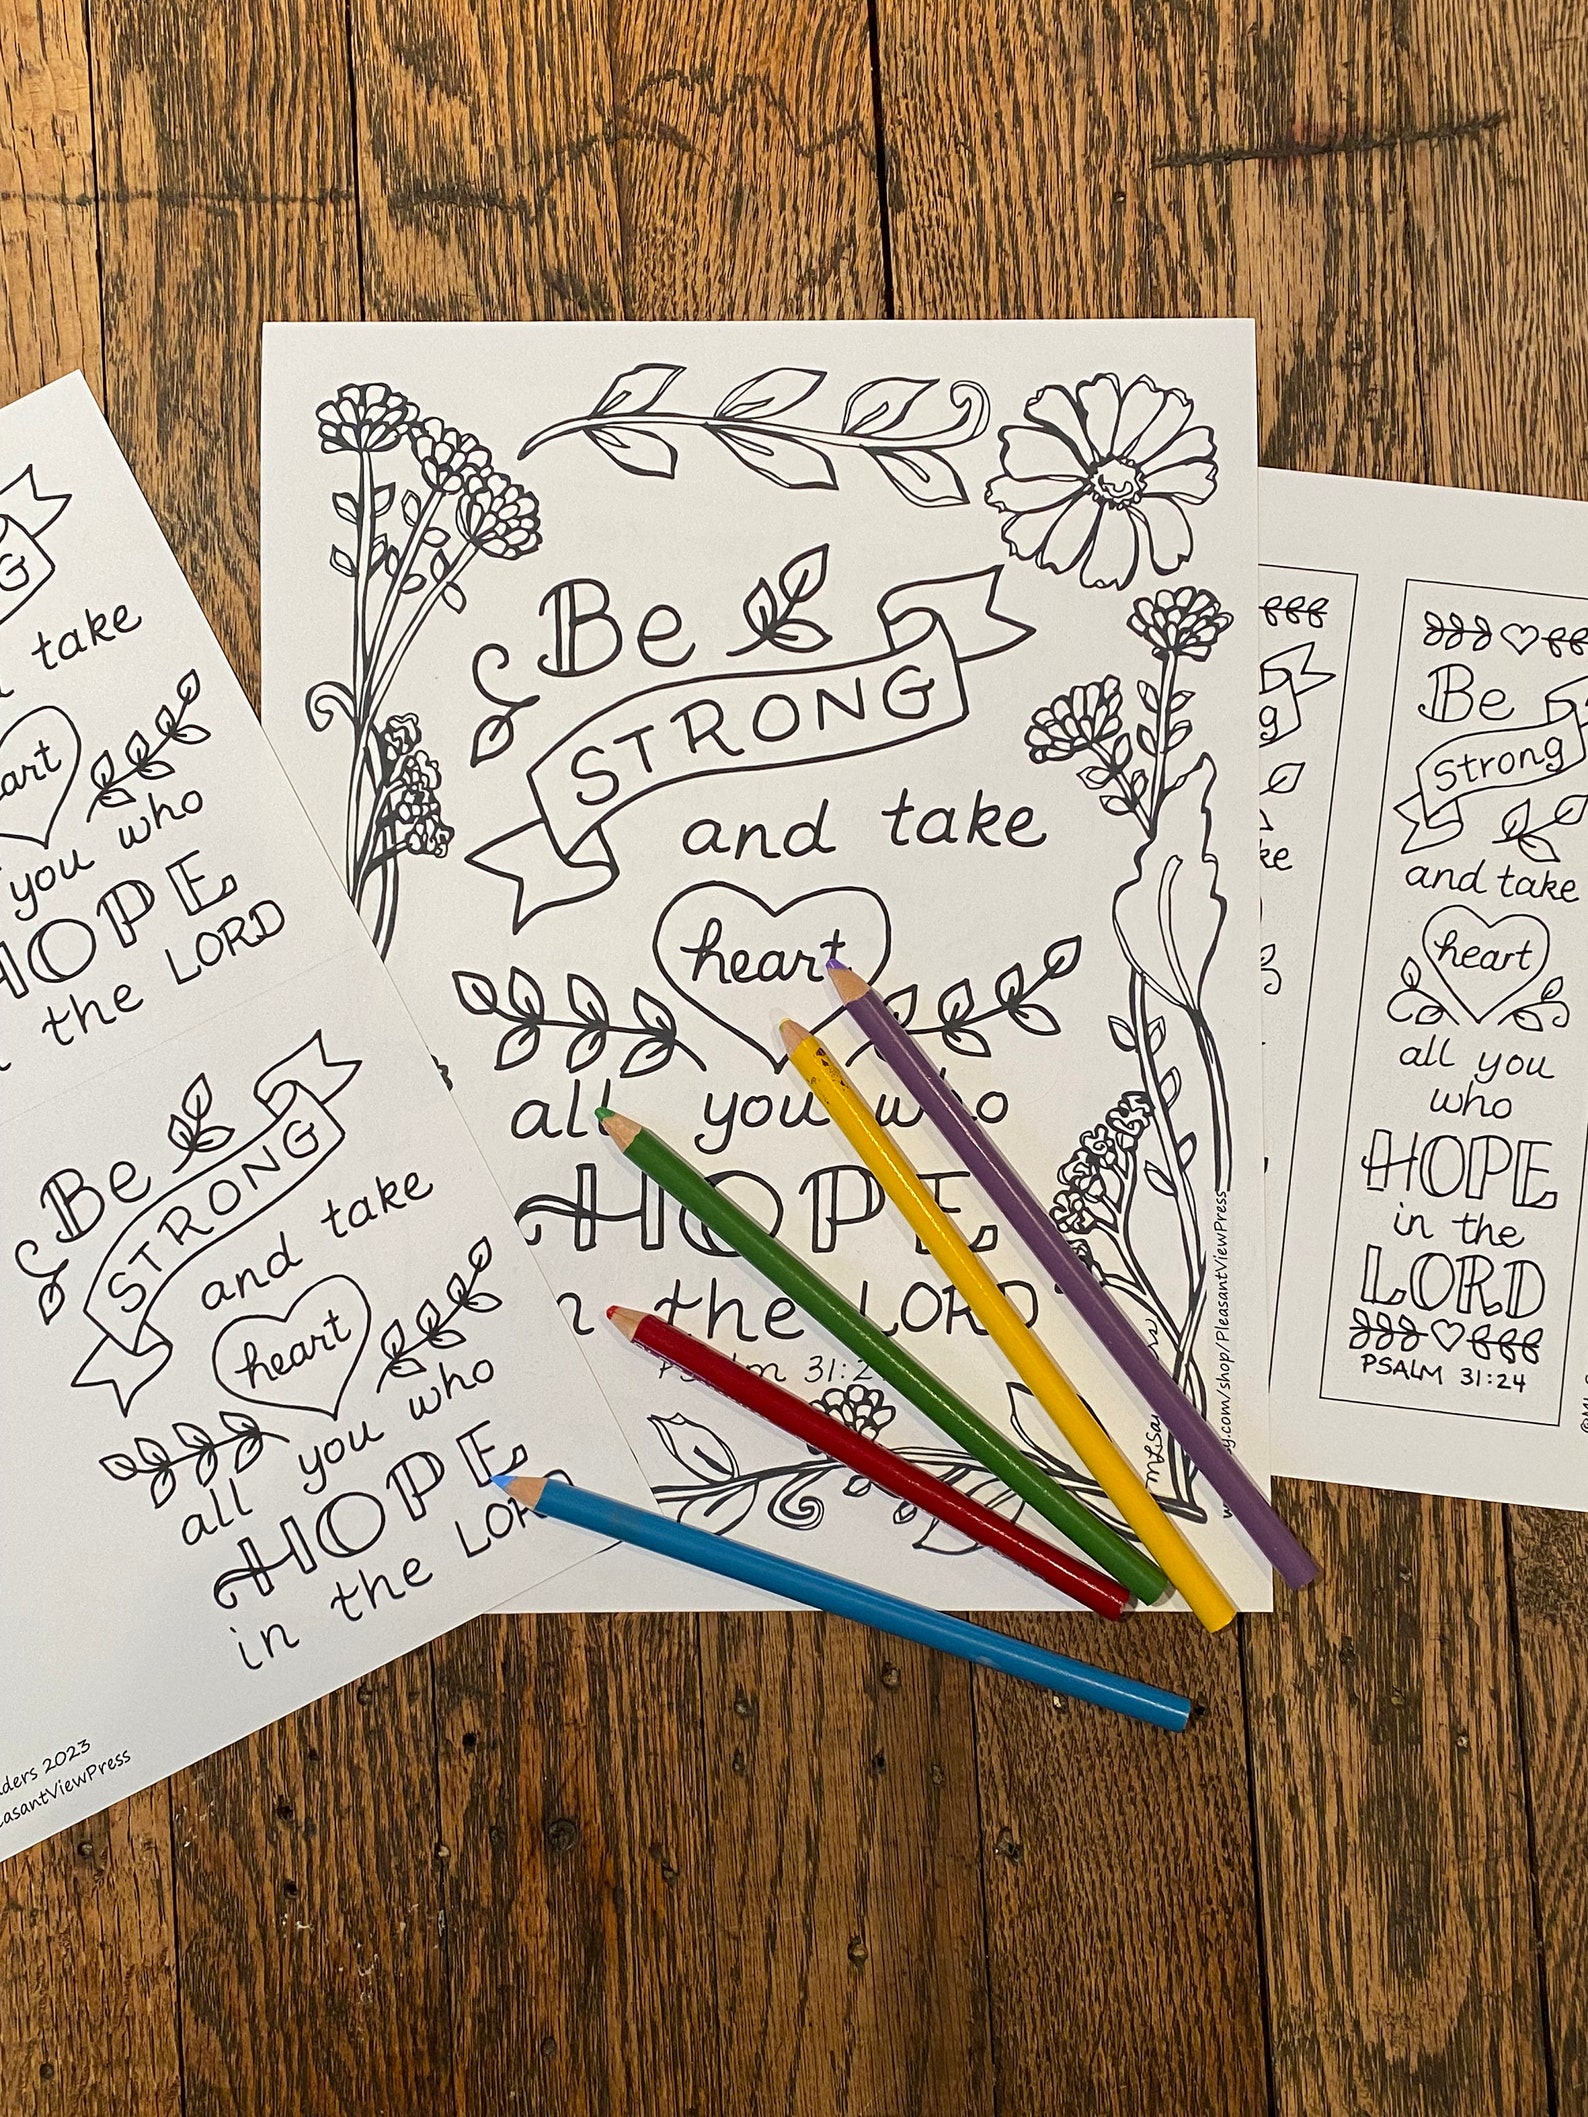 take
you who
HOPE
the LORD
Be
STRONG
and take
heart
all you who
HOPE
in the
2023
PleasantViewPress
Be
STRONG
and take
heart
all you who
HOPE
the LORD
Psalm 31:2
.com/shop/PleasantViewPress
Be
Strong
and take
heart
all you
who
HOPE
in the
LORD
PSALM 31:24